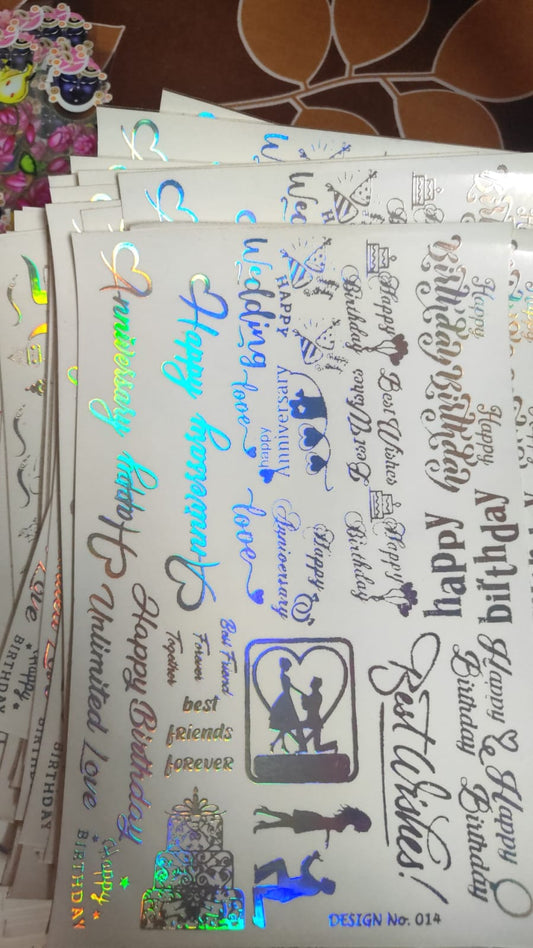 Happy
Birthday
Happy
Birthday
happy
birthday
Happy
Birthday
Happy
Birthday
Happy
Birthday
Best Wishes
Best Wishes
Happy
Birthday
Best Wishes!
Wedding
HAPPY
love
happy
Anniversary
Happy
Anniversary
love
Happy Anniversary
Anniversary
Happy
Best Friend
Forever
Together
best
friends
forever
Happy Birthday
Unlimited Love
Happy
BIRTHDAY
DESIGN No. 014
Happy
BIRTHDAY